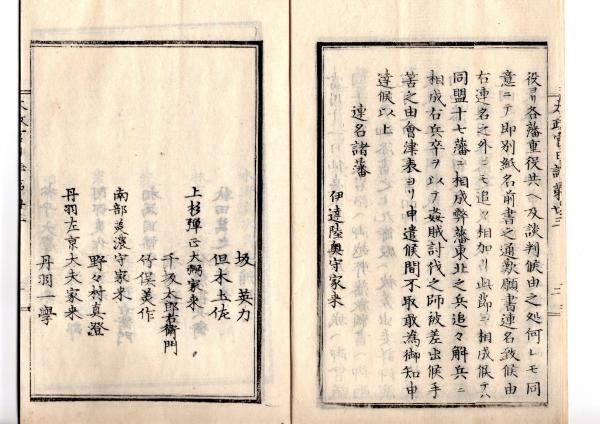 役ヨリ各藩重役共ヘ及談判候由之処何レモ同
意ニテ即別紙名前書之通歎願書連名致候由
右連名之外ニモ追々相加ハリ此節ニ相成候テハ
同盟十七藩ニ相成弊藩東北之兵追々解兵ニ
相成右兵卒ヲ以テ姦賊討伐之師被差出候手
筈之由會津表ヨリ申遣候間不取敢為御知申
達候以上
連名諸藩
伊達陸奥守家来
坂英力
但木土佐
上杉弾正大弼家来
千坂太郎右衛門
竹俣美作
南部美濃守家来
野々村真澄
丹羽左京大夫家来
丹羽一學
太政官日誌第
三